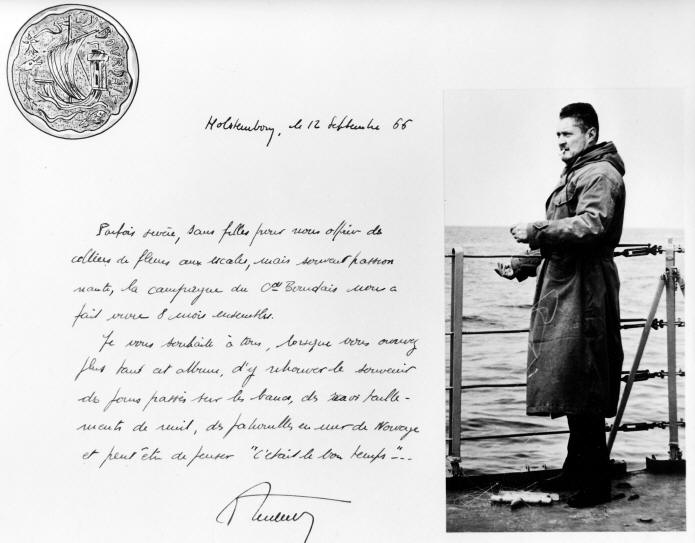 BOURDAIS
Holstenborg, le 12 Septembre 66
Parfois sevère, sans filles pour nous offrir des
colliers de fleurs aux escales, mais souvent passion
nante, la campagne du Cdt Bourdais nous a
fait vivre 8 mois ensembles.
Je vous souhaite à tous, lorsque vous ouvrez
plus tard cet album, d'y retrouver le souvenir
des jours passés sur les bancs, des ravitaille-
ments de nuit, des patrouilles en mer de Norvège
et peut être de penser "C'était le bon temps"...